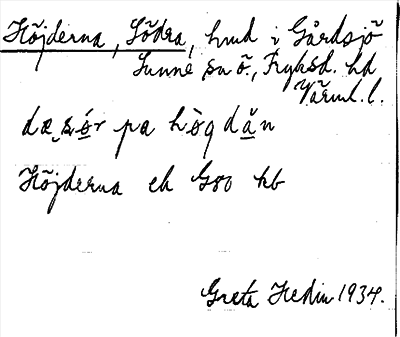 Höjderna, Södra, hmd i Gårdsjö
Sunne sn ö., Fryksd. hd
Värml. l.
dæ, sǿr pa hòqdăn
Höjderna ek G80 kb
Greta Hedin 1934.